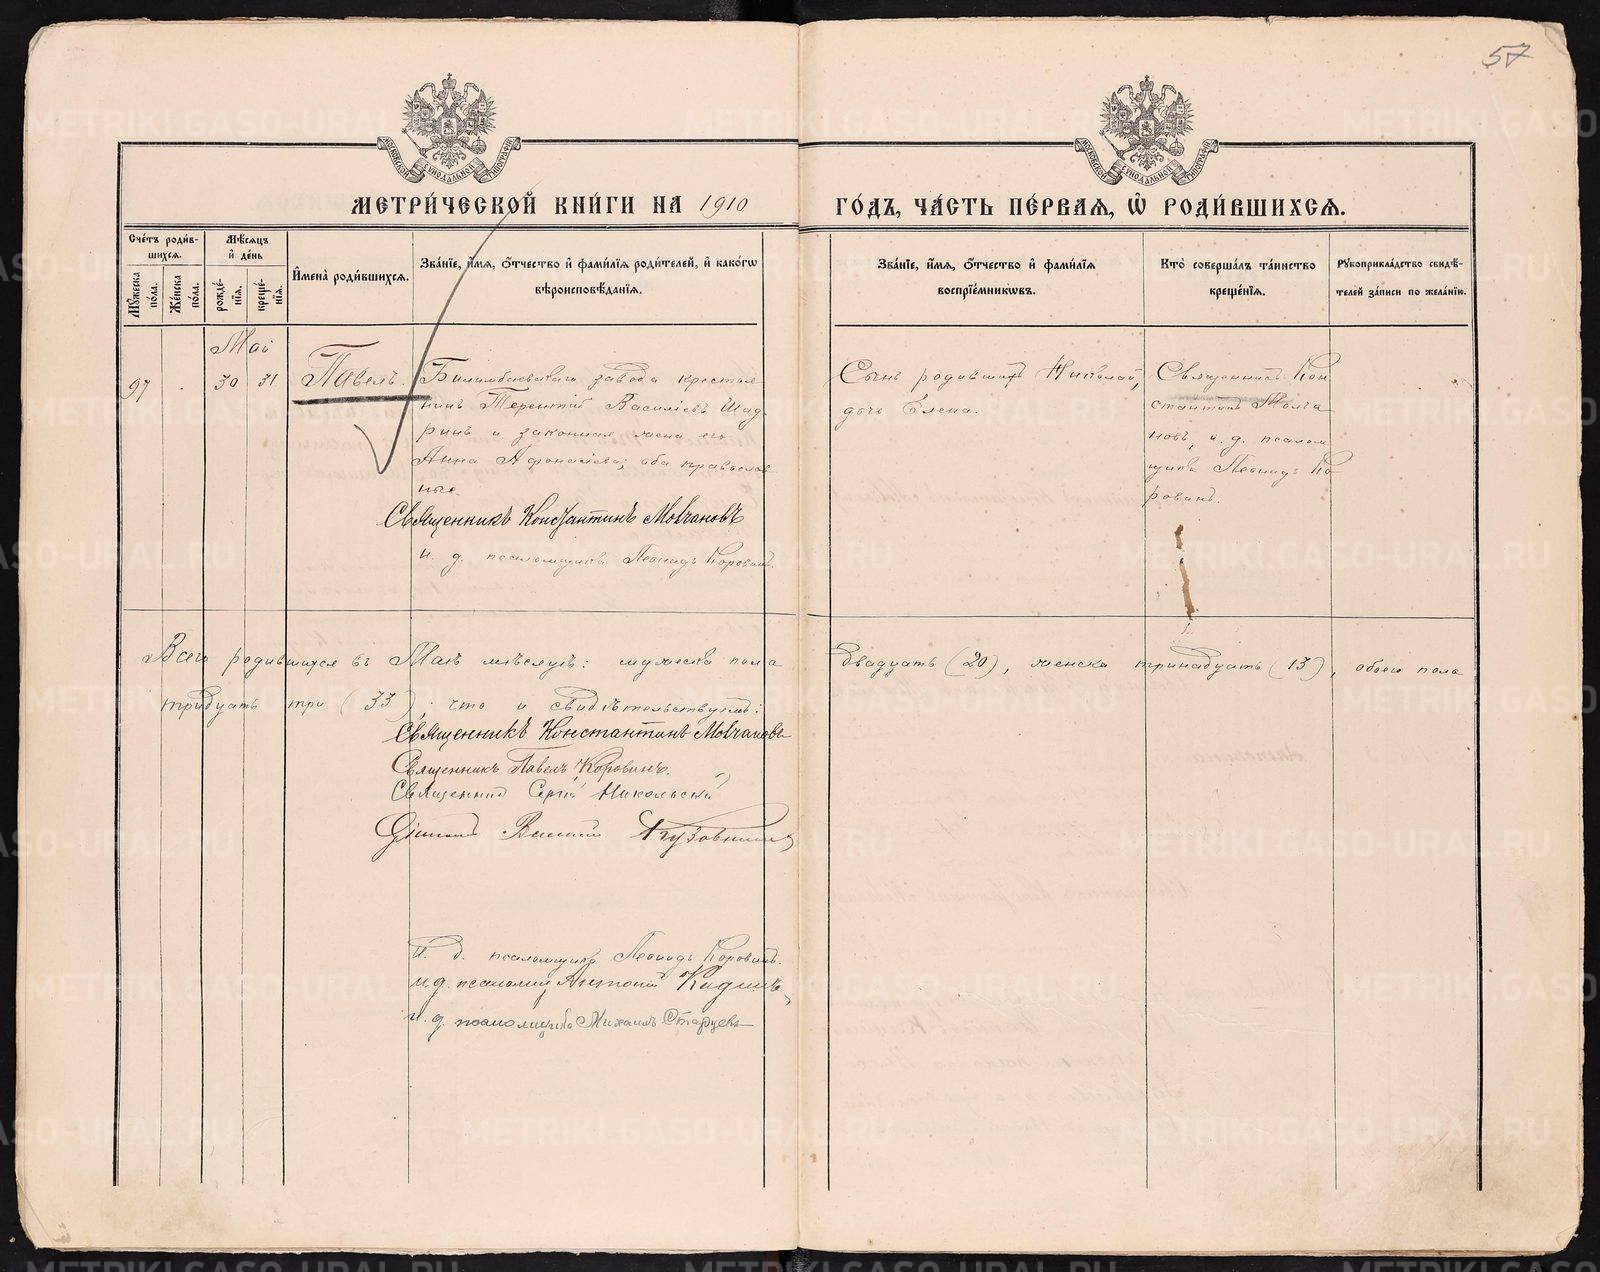 57
МОСКОВСКОЙ СѴНОДАЛЬНОЙ ТИПОГРАФІИ
МОСКОВСКОЙ СѴНОДАЛЬНОЙ ТИПОГРАФІИ
МЕТРИ́ЧЕСКОЙ КНИ́ГИ НА 1910 ГО́ДЪ, ЧА́СТЬ ПЕ́РВАѦ, Ѡ҆ РОДИ́ВШИХСѦ.
Сче́тъ роди́в-
шихсѧ.
Мꙋ́жеска по́ла.
Же́нска по́ла.
Мѣ́сѧцъ
и҆ де́нь
рожде́-
нїѧ.
креще́-
нїѧ.
И҆мена̀ роди́вшихсѧ.
Зва́нїе, и҆́мѧ, ѻ҆́тчество и҆ фами́лїѧ роди́телей, и҆ како́гѡ
вѣроисповѣ́данїѧ.
Зва́нїе, и҆́мѧ, ѻ҆́тчество и҆ фами́лїѧ
воспрїе́мникѡвъ.
Кто̀ соверша́лъ та́инство
креще́нїѧ.
Рꙋкоприкла́дство свидѣ́-
телей за́писи по жела́нїю.
Май
97 . 30 31 Павелъ.
Билимбаевскаго завода крестья
нинъ Терентій Васильевъ Шад
ринъ и законная жена его
Анна Афонасіева; оба православ
ные
Священникъ Константинъ Молчановъ
И. д. псаломщика Леонидъ Коровинъ.
Сынъ родившихъ Николай,
дочь Елена.
Священникъ Кон
стантинъ Молча
новъ, и. д. псалом
щика Леонидъ Ко
ровинъ.
Всего родившихся въ Маѣ мѣсяцѣ: мужеска пола двадцать (20), женска тринадцать (13), обоего пола
тридцать три (33), что и свидѣтельствуемъ:
Священникъ Константинъ Молчановъ
Священникъ Павелъ Коровинъ.
Священникъ Сергій Никольскій
Діаконъ Василій
И. д. псаломщика Леонидъ Коровинъ.
И.д. псаломщ Антоній
И. д. псаломщика Михаилъ Старцевъ
METRIKI.GASO-URAL.RU